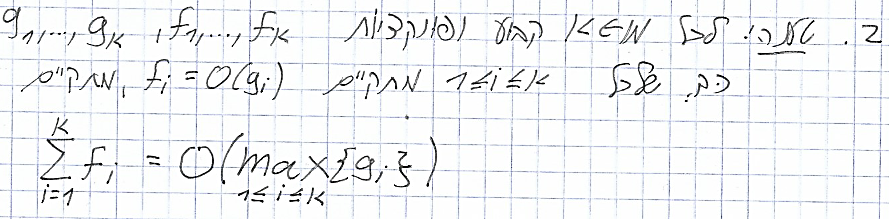 2. טענה: לכל k∈ℕ קבוע ופונקציות f₁,...,fₖ , g₁,...,gₖ
כך שלכל 1≤i≤k מתקיים fᵢ = O(gᵢ) , מתקיים
∑ᵢ₌₁ᵏ fᵢ = O(max_{1≤i≤k}{gᵢ})